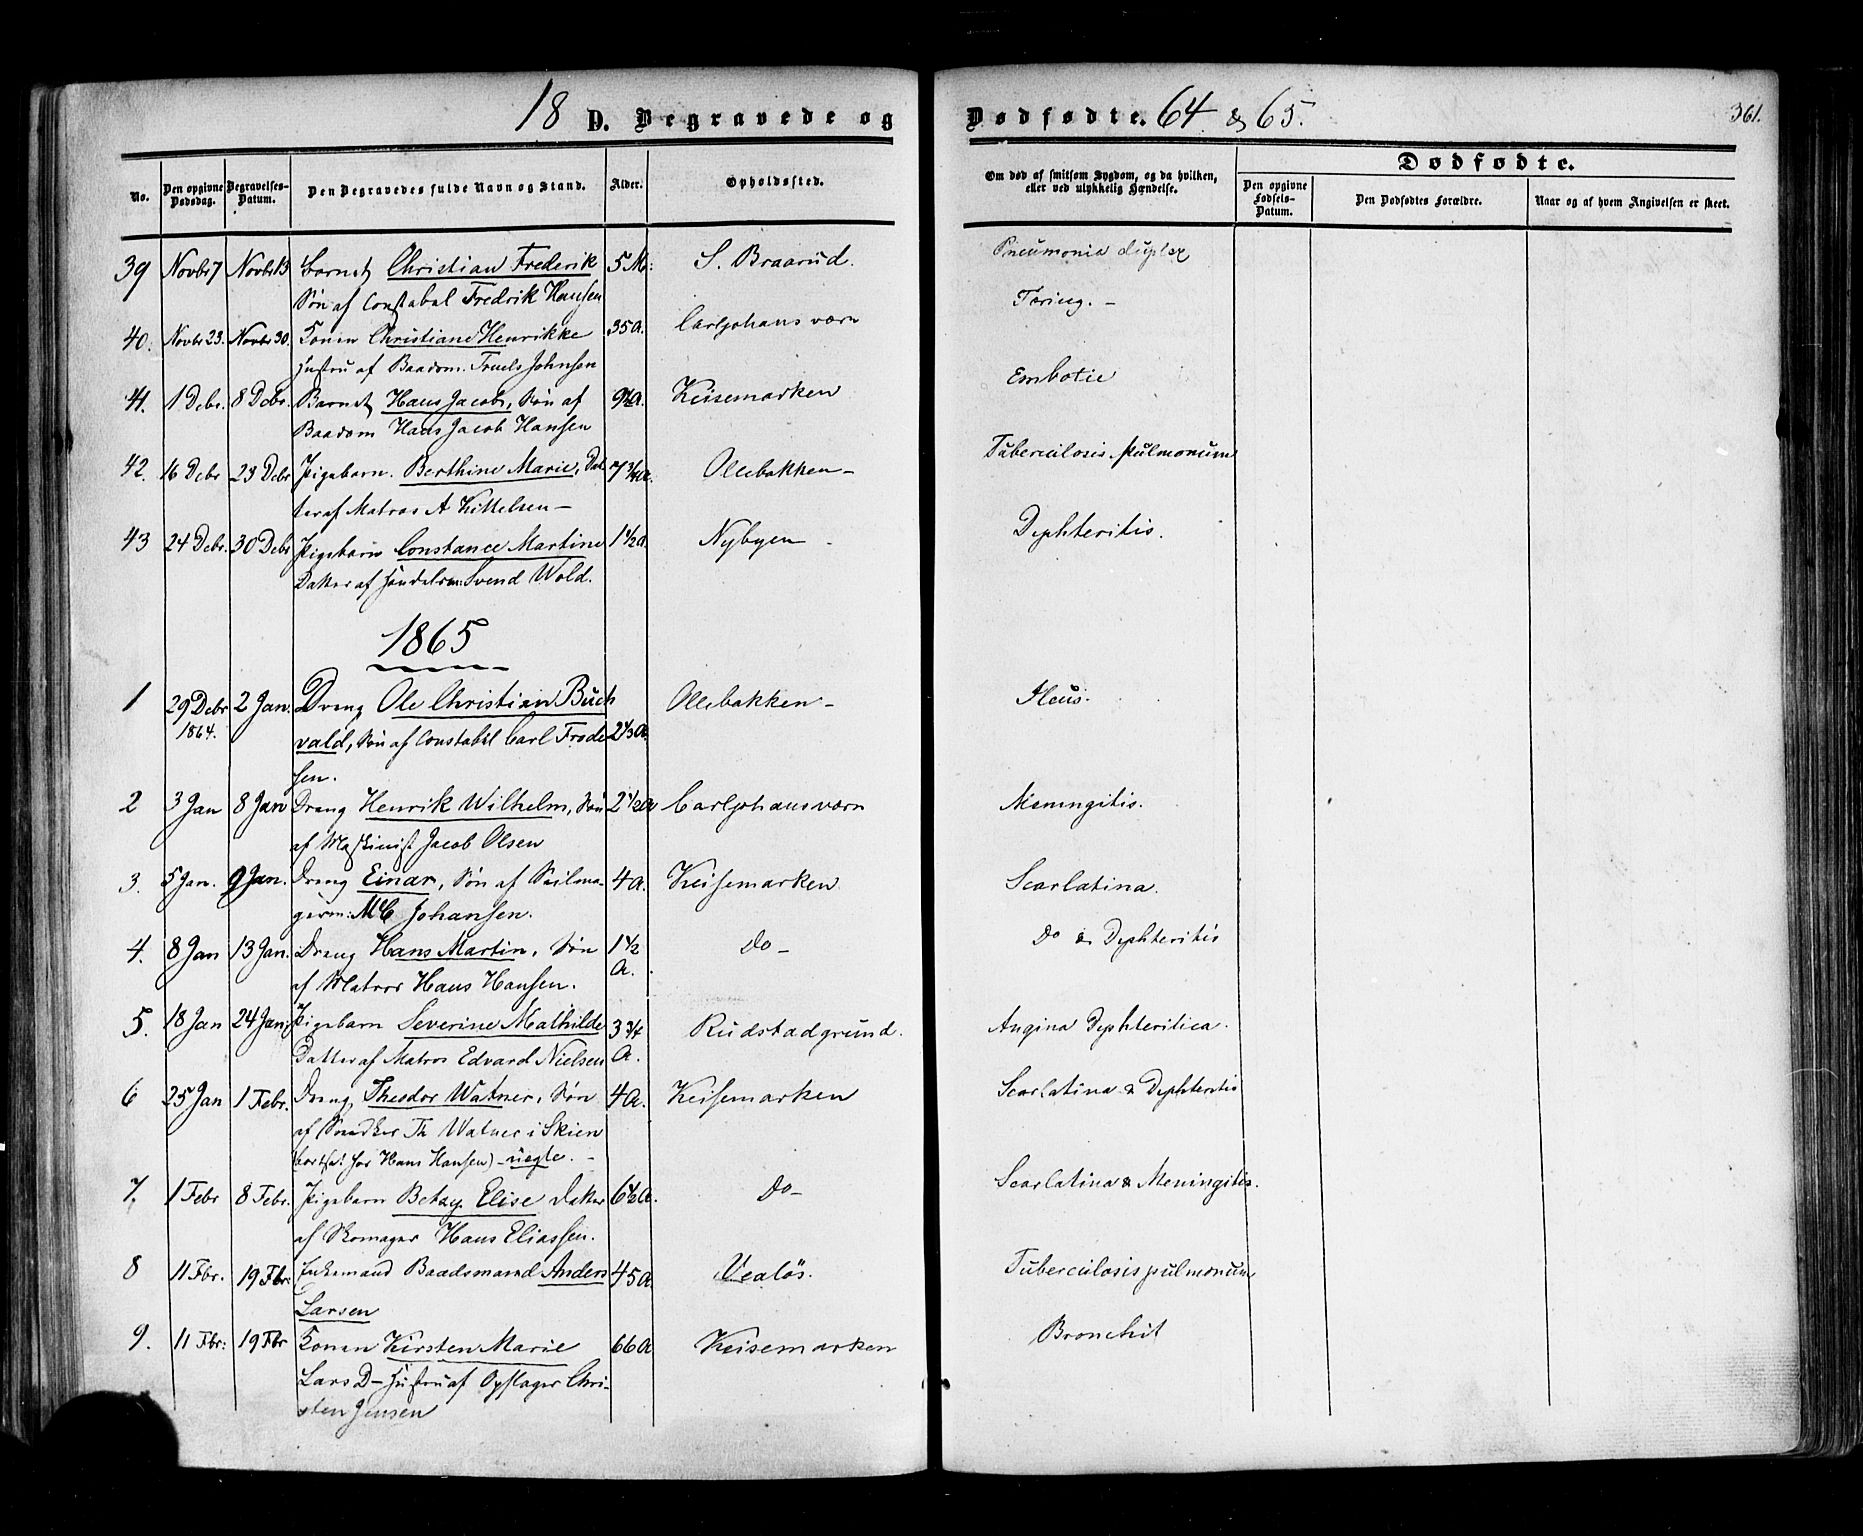 18 D. Begravede og Dødfødte. 64 & 65.
361.
No.
Den opgivne Dødsdag.
Begravelses-Datum.
Den Begravedes fulde Navn og Stand.
Alder.
Opholdssted.
Om død af smitsom Sygdom, og da hvilken, eller ved ulykkelig Hændelse.
Dødfødte.
Den opgivne Fødsels-Datum.
Den Dødfødtes Forældre.
Naar og af hvem Angivelsen er skeet.
39 Novbr 7 Novbr 13 Barnet Christian Frederik 5 M: S. Braarud. Pneumonia duplex
Søn af Constabel Fredrik Hansen
40. Novbr 23. Novbr 30. Konen Christiane Henrikke 35 A. Carljohansværn Tæring. -
Hustru af Baadsm. Truels Johnsen
41. 1 Debr. 8 Debr. Barnet Hans Jacob, Søn af Keisemarken Embolie
Baadsm Hans Jacob Hansen
42. 16 Debr 23 Debr Pigebarn. Berthine Marie, Dat 7 3/4 A. Ollebakken - Tuberculosis pulmonum
ter af Matros A Kittelsen -
43 24 Debr. 30 Debr Pigebarn Constance Martine 1 1/2 A. Nybyen - Dyphteritis.
Datter af Handelsm: Svend Wold.
1865
1 29 Debr 1864. 2 Jan. Dreng Ole Christian Buch Ollebakken - Ileus.
vald, Søn af Constabel Carl Frede 2 1/3 A.
sen.
2 3 Jan 8 Jan Dreng Henrik Wilhelm, Søn 2 1/2 A Carljohansværn Meningitis.
af Maskinist Jacob Olsen
3. 5 Jan. 9 Jan. Dreng Einar, Søn af Seilma- 4 A. Keisemarken Scarlatina.
germ: MC Johansen.
4. 8 Jan 13 Jan. Dreng Hans Martin, Søn 1 1/2 A. Do - Do & Dyphteritis
af Matros Hans Hansen.
5. 18 Jan 24 Jan. Pigebarn Severine Mathilde 3 3/4 A. Rudstadgrund. Angina Dyphteritica.
Datter af Matros Edvard Nielsen
6 25 Jan 1 Febr. Dreng Theodor Watner, Søn 4 A. Keisemarken Scarlatina & Dyphteritis
af Snedker Th Watner i Skien
(bortsat hos Hans Hansen) - uægte. -
7. 1 Febr 8 Febr. Pigebarn Betzy Elise Datter 6 1/2 A. Do - Scarlatina & Meningitis.
af Skomager Hans Eliassen.
8 11 Fbr. 19 Fbr. Enkemand Baadsmand Anders 45 A. Vealös. Tuberculosis pulmonum
Larsen
9. 11 Fbr: 19 Fbr Konen Kirsten Marie 66 A Keisemarken Bronchit
Lars D - Hustru af Opslager Chri-
sten Jensen